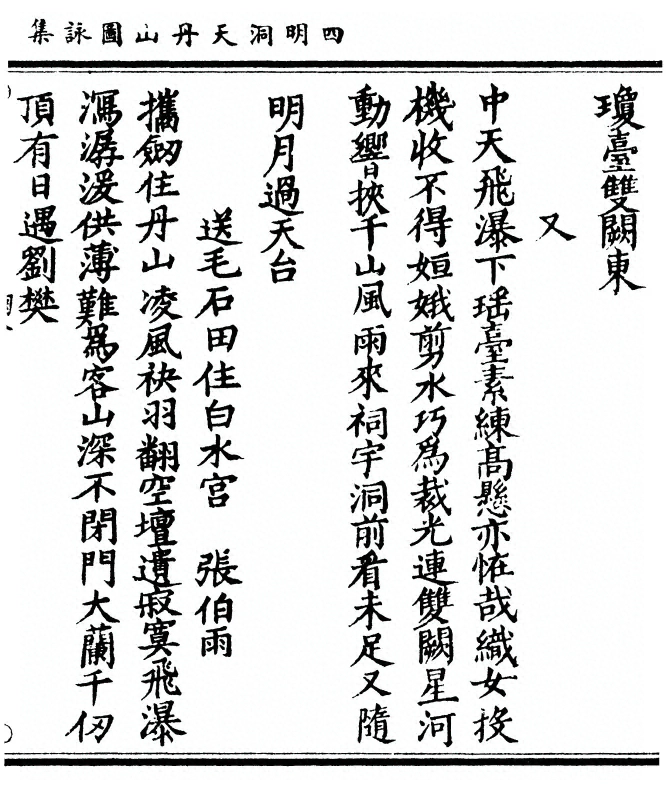 四明洞天丹山圖詠集
瓊臺雙闕東
又
中天飛瀑下瑤臺素練高懸亦怪哉織女投
機收不得姮娥剪水巧爲裁光連雙闕星河
動響挾千山風雨來祠宇洞前看未足又隨
明月過天台
送毛石田住白水宮　張伯雨
攜劒住丹山凌風袂羽翻空壇遺寂寞飛瀑
瀉潺湲供薄難爲客山深不閉門大蘭千仞
頂有日遇劉樊